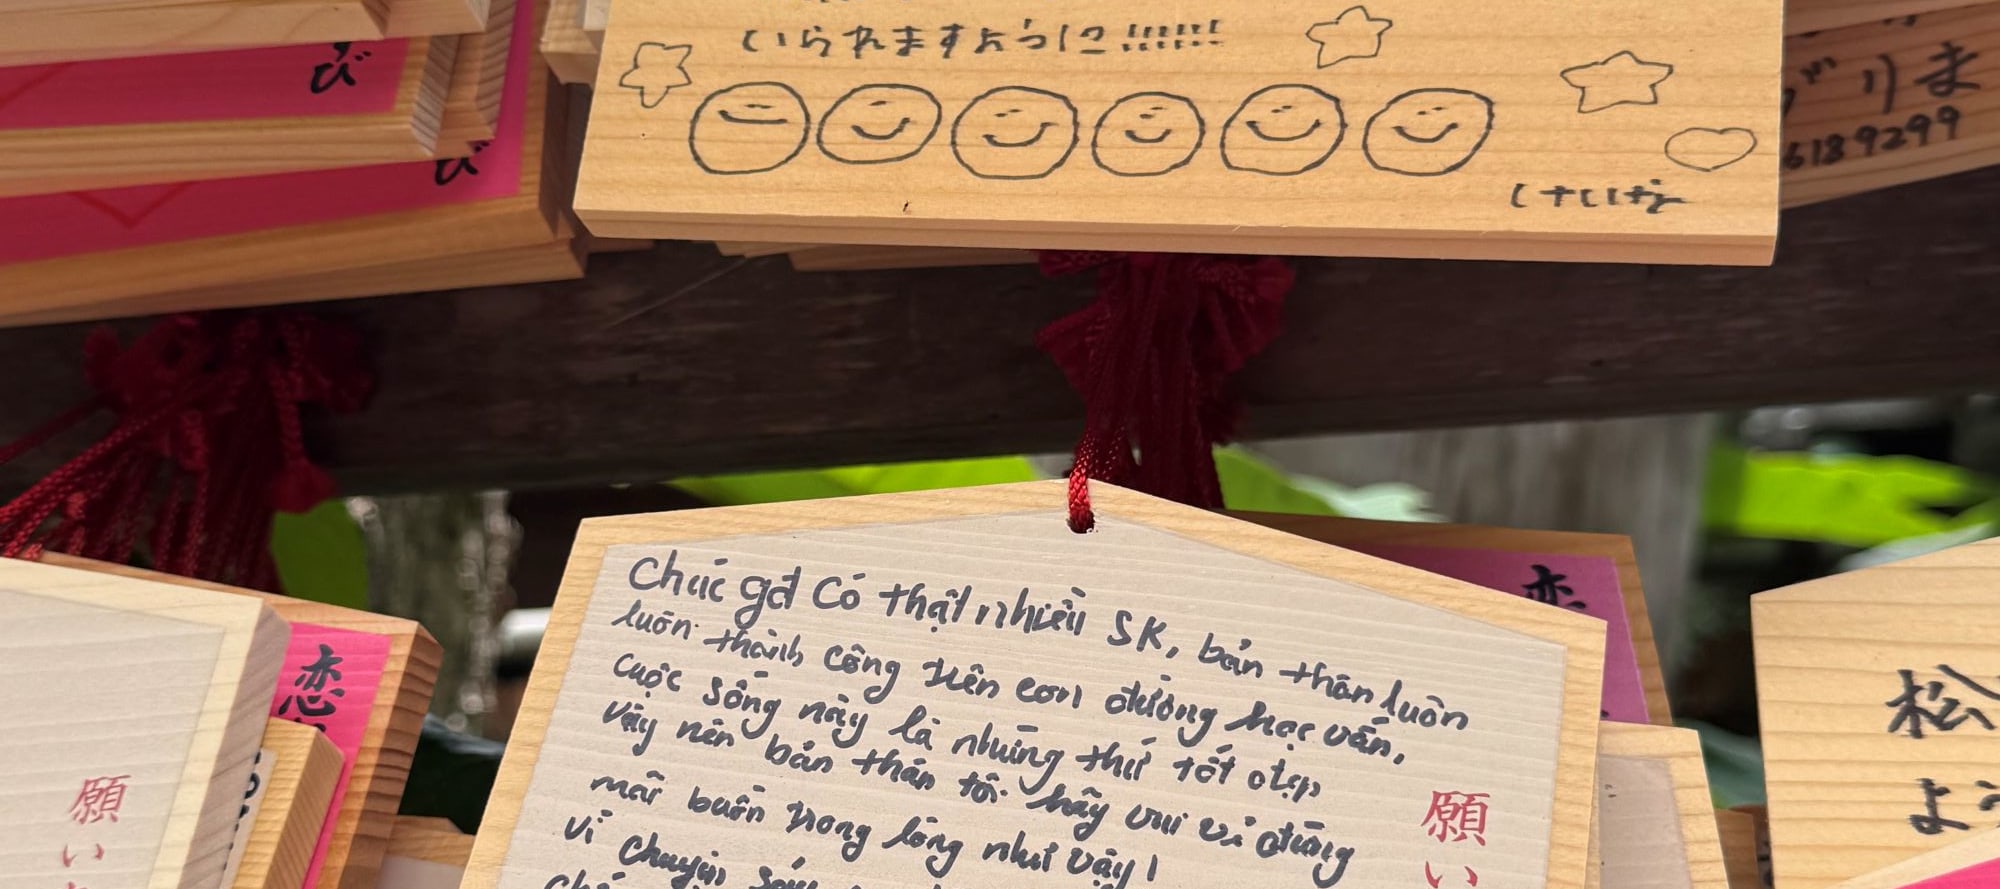 いられますように!!!!!!
び
び
がりま
6189299
Chúc gđ có thật nhiều SK, bản thân luôn
luôn thành công trên con đường học vấn,
cuộc sống này là những thứ tốt đẹp
vậy nên bản thân tôi hãy vui vẻ đừng
mãi buồn trong lòng như vậy!
vì chuyện
恋
恋
願い
願い
松
よう